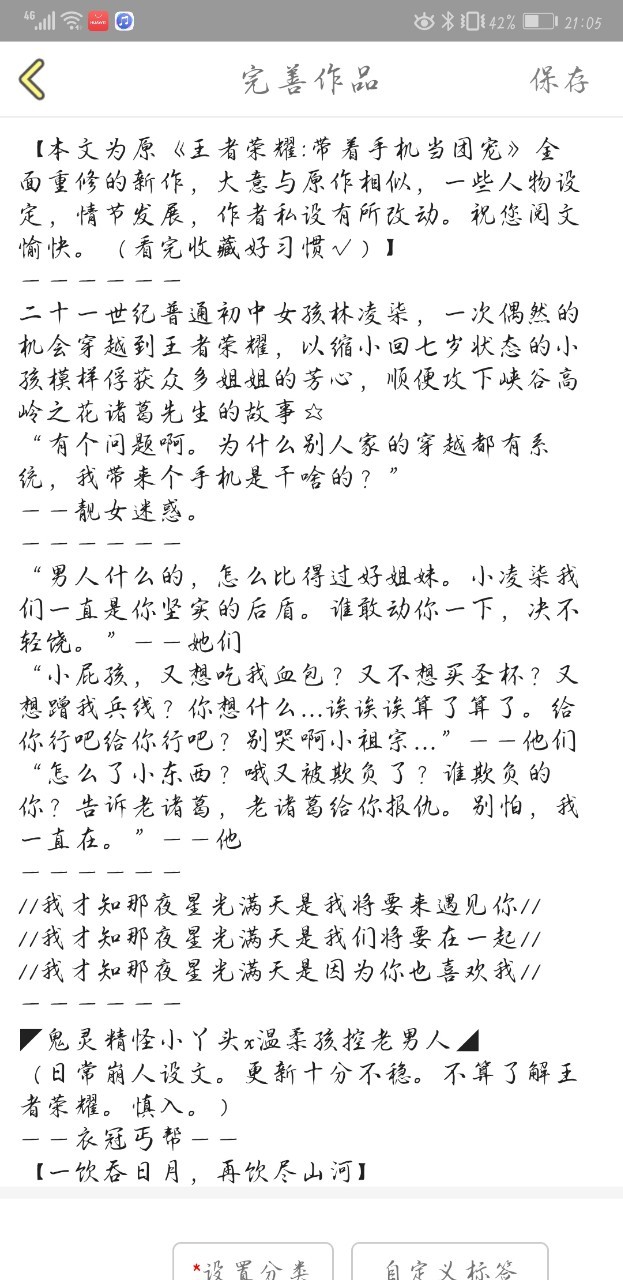 4G 42% 21:05
完善作品 保存
【本文为原《王者荣耀:带着手机当团宠》全
面重修的新作，大意与原作相似，一些人物设
定，情节发展，作者私设有所改动。祝您阅文
愉快。（看完收藏好习惯✓）】
——————
二十一世纪普通初中女孩林凌柒，一次偶然的
机会穿越到王者荣耀，以缩小回七岁状态的小
孩模样俘获众多姐姐的芳心，顺便攻下峡谷高
岭之花诸葛先生的故事☆
“有个问题啊。为什么别人家的穿越都有系
统，我带来个手机是干啥的？”
——靓女迷惑。
——————
“男人什么的，怎么比得过好姐妹。小凌柒我
们一直是你坚实的后盾。谁敢动你一下，决不
轻饶。”——她们
“小屁孩，又想吃我血包？又不想买圣杯？又
想蹭我兵线？你想什么...诶诶诶算了算了。给
你行吧给你行吧？别哭啊小祖宗...”——他们
“怎么了小东西？哦又被欺负了？谁欺负的
你？告诉老诸葛，老诸葛给你报仇。别怕，我
一直在。”——他
——————
//我才知那夜星光满天是我将要来遇见你//
//我才知那夜星光满天是我们将要在一起//
//我才知那夜星光满天是因为你也喜欢我//
——————
◤鬼灵精怪小丫头x温柔孩控老男人◢
（日常崩人设文。更新十分不稳。不算了解王
者荣耀。慎入。）
——衣冠丐帮——
【一饮吞日月，再饮尽山河】
*设置分类 自定义标签